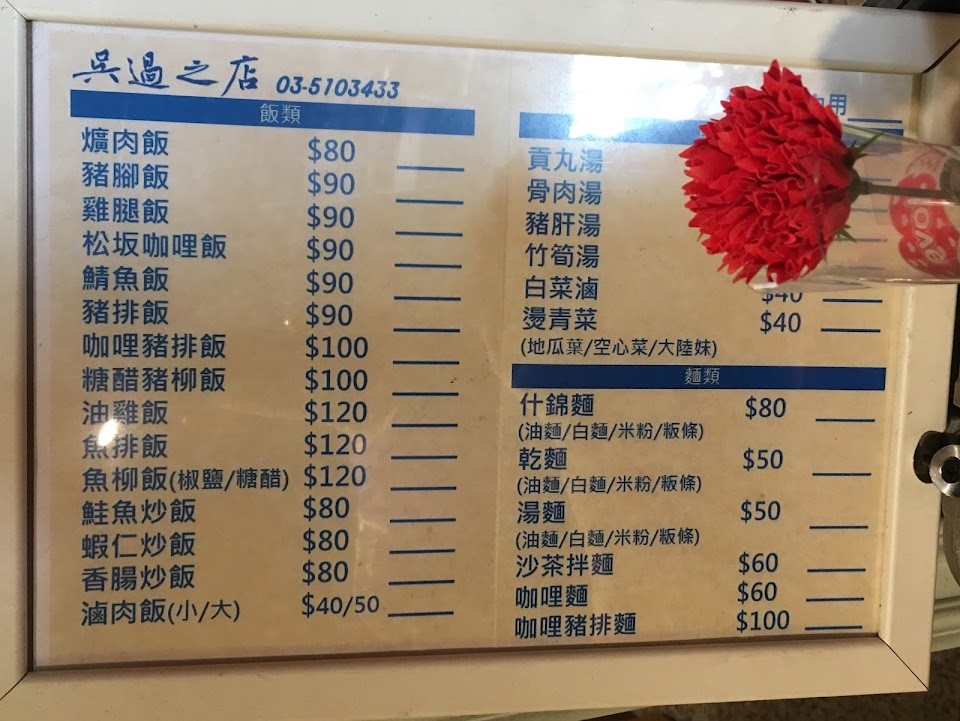 吳過之店 03-5103433
飯類
爌肉飯 $80
豬腳飯 $90
雞腿飯 $90
松坂咖哩飯 $90
鯖魚飯 $90
豬排飯 $90
咖哩豬排飯 $100
糖醋豬柳飯 $100
油雞飯 $120
魚排飯 $120
魚柳飯(椒鹽/糖醋) $120
鮭魚炒飯 $80
蝦仁炒飯 $80
香腸炒飯 $80
滷肉飯(小/大) $40/50
內用
貢丸湯
骨肉湯
豬肝湯
竹筍湯
白菜滷 $40
燙青菜 $40
(地瓜葉/空心菜/大陸妹)
麵類
什錦麵 $80
(油麵/白麵/米粉/粄條)
乾麵 $50
(油麵/白麵/米粉/粄條)
湯麵 $50
(油麵/白麵/米粉/粄條)
沙茶拌麵 $60
咖哩麵 $60
咖哩豬排麵 $100
love